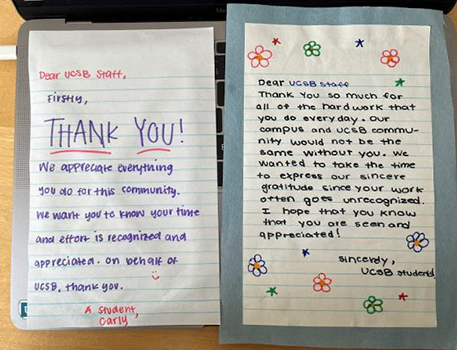 Dear UCSB Staff,
Firstly,
THANK YOU!
We appreciate everything
you do for this community.
We want you to know your time
and effort is recognized and
appreciated. On behalf of
UCSB, thank you.
A student,
Carly
Dear UCSB staff
Thank you so much for
all of the hard work that
you do everyday. Our
campus and UCSB commu-
nity would not be the
same without you. We
wanted to take the time
to express our sincere
gratitude since your work
often goes unrecognized.
I hope that you know
that you are seen and
appreciated!
Sincerly,
UCSB students